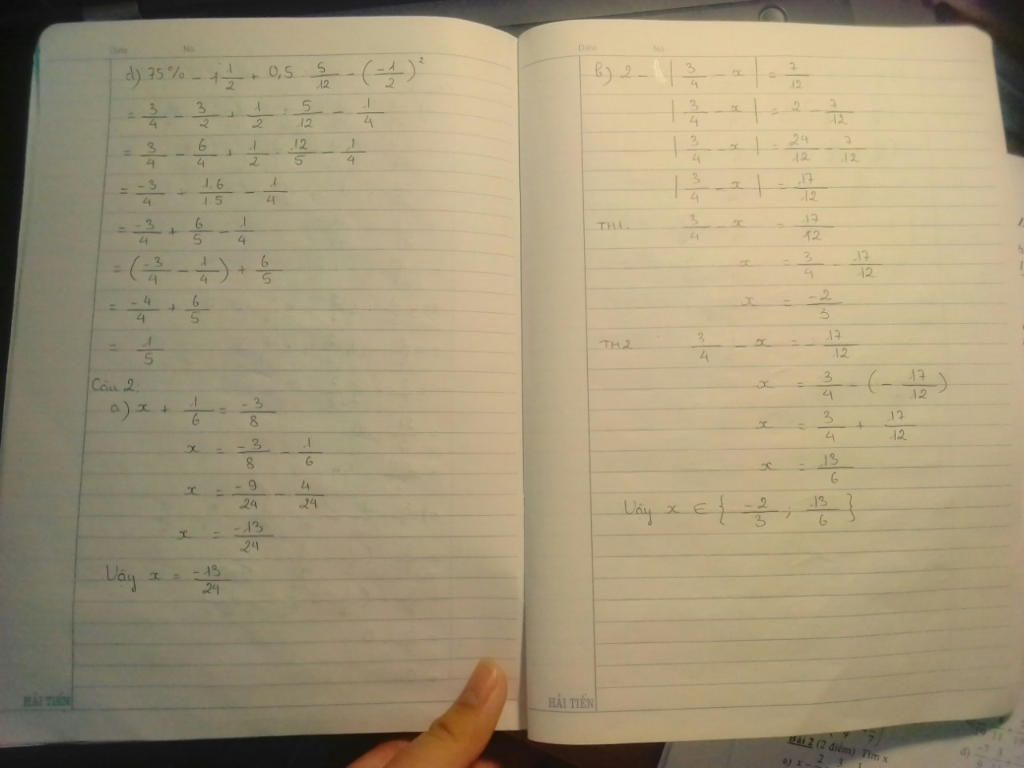 Date No
d) 75% - 1 1/2 + 0,5 : 5/12 - (-1/2)²
= 3/4 - 3/2 + 1/2 : 5/12 - 1/4
= 3/4 - 6/4 + 1/2 . 12/5 - 1/4
= -3/4 - 1.6/1.5 - 1/4
= -3/4 + 6/5 - 1/4
= (-3/4 - 1/4) + 6/5
= -4/4 + 6/5
= 1/5
Câu 2.
a) x + 1/6 = -3/8
x = -3/8 - 1/6
x = -9/24 - 4/24
x = -13/24
Vậy x = -13/24
HẢI TIẾN
Date No
b) 2 - | 3/4 - x | = 7/12
| 3/4 - x | = 2 - 7/12
| 3/4 - x | = 24/12 - 7/12
| 3/4 - x | = 17/12
TH1. 3/4 - x = 17/12
x = 3/4 - 17/12
x = -2/3
TH2 3/4 - x = -17/12
x = 3/4 - (- 17/12)
x = 3/4 + 17/12
x = 13/6
Vậy x ∈ { -2/3 ; 13/6 }
HẢI TIẾN
Bài 2 (2 điểm) Tìm x